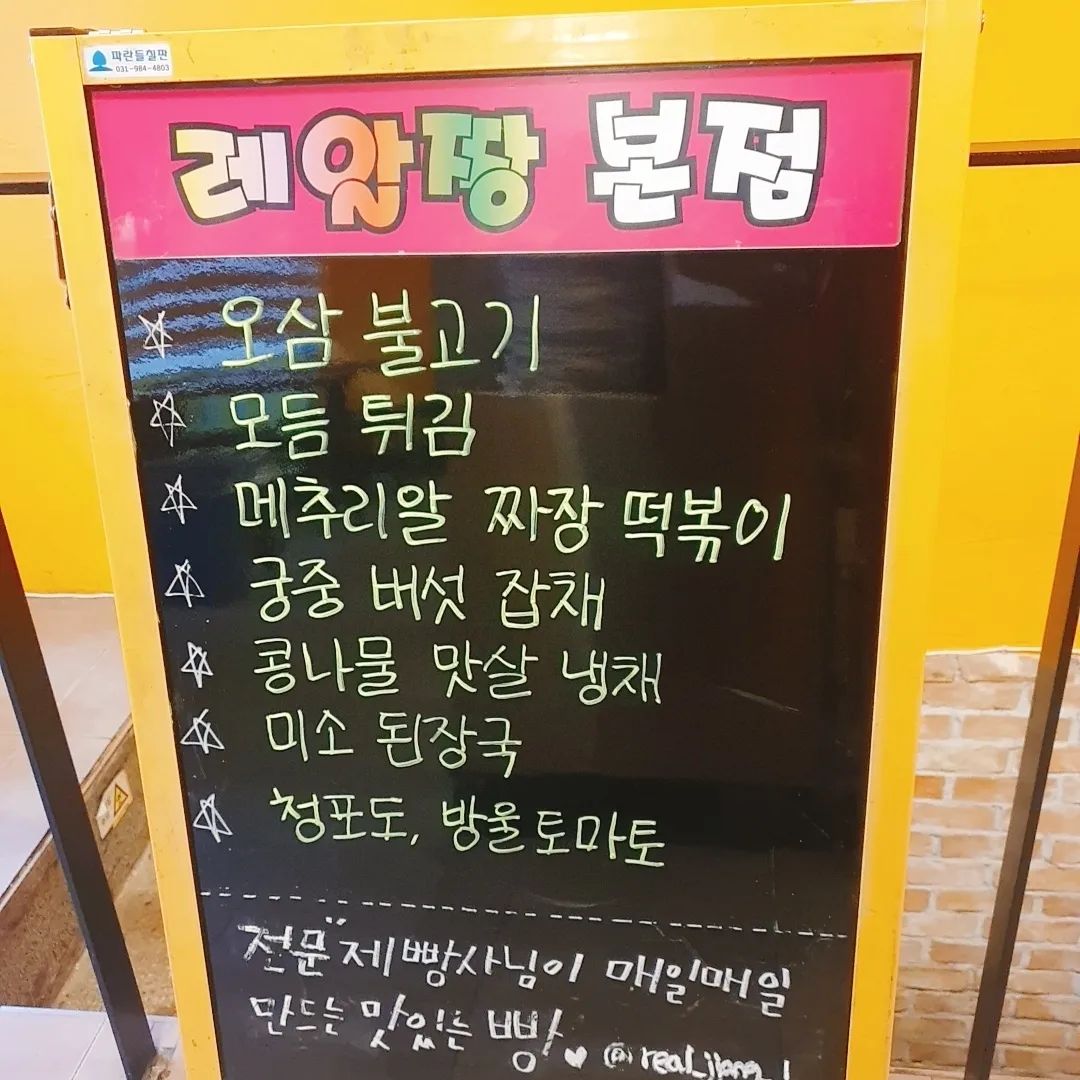 파란들칠판
031-984-4803
레알짱 본점
오삼 불고기
모듬 튀김
메추리알 짜장 떡볶이
궁중 버섯 잡채
콩나물 맛살 냉채
미소 된장국
청포도, 방울토마토
전문"제빵사님이 매일매일
만드는 맛있는 빵